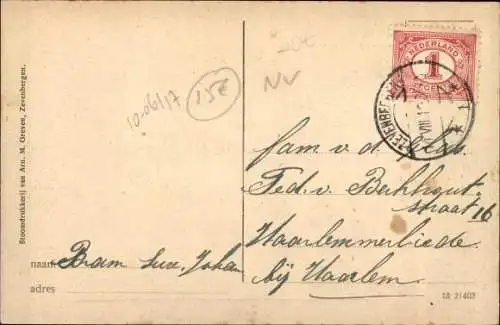 Stoomdrukkerij van Arn. M. Greven, Zevenbergen.
10-06/17
15€
NV
NEDERLAND
1
ZEVENBERGEN
VIII
1
Fam v. d. Klas.
Ted. v. Berkhout-
straat 16
Haarlemmerliede.
bij Haarlem.
naam Bram Johan
adres
18 21402